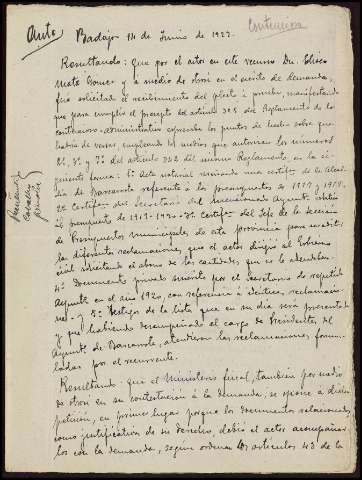 Contencioso
Auto
Badajoz 14 de Junio de 1927.
Resultando: Que por el actor en este recurso Dn. Eliseo
y a medio de otrosí en el escrito de demanda,
fué solicitado el recibimiento del pleito a prueba, manifestando
que para cumplir el precepto del artículo 326 del Reglamento de lo
contencioso-administrativo expresaba los puntos de hecho sobre que
había de versar, empleando los medios que autorizan los números
2º, 3º y 7º del artículo 342 del mismo Reglamento, en la si-
guiente forma: 1º Acta notarial
día de Barcarrota referente a los presupuestos de 1917 y 1918.
2º Certificn. del Secretario del mencionado Ayuntº.
al presupuesto de 1919-1920. 3º Certificn. del Jefe de la Sección
de Presupuestos Municipales de esta provincia para acreditar
las diferentes reclamaciones que el actor dirigió al Gobierno
civil solicitando el abono de las cantidades que se le adeudaban.
4º Documento privado suscrito por el Secretario de repetido
Ayuntº en el año 1920, con referencia a idénticas reclamacio-
nes - y 5º Testigos de la lista que en su día será presentada
y que habiendo desempeñado el cargo de Presidentes del
Ayuntº de Barcarrota, atendieron las reclamaciones formu-
ladas por el recurrente.
Resultando: que el Ministerio fiscal, también por medio
de otrosí en su contestación a la demanda, se opone a dicha
petición, en primer lugar porque los documentos relacionados,
como justificativos de su derecho, debió el actor acompañar-
los con la demanda, según ordenan los artículos 43 de la